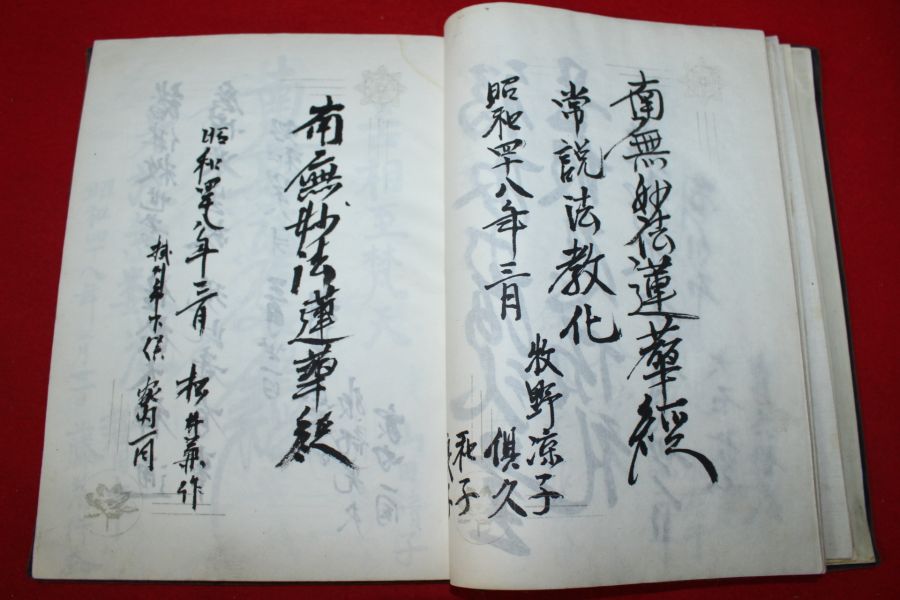 南無妙法蓮華経
常説法教化
昭和四十八年三月
牧野凉子
倶久
和子
南無妙法蓮華経
昭和四十八年三月 松井兼作
家内一同